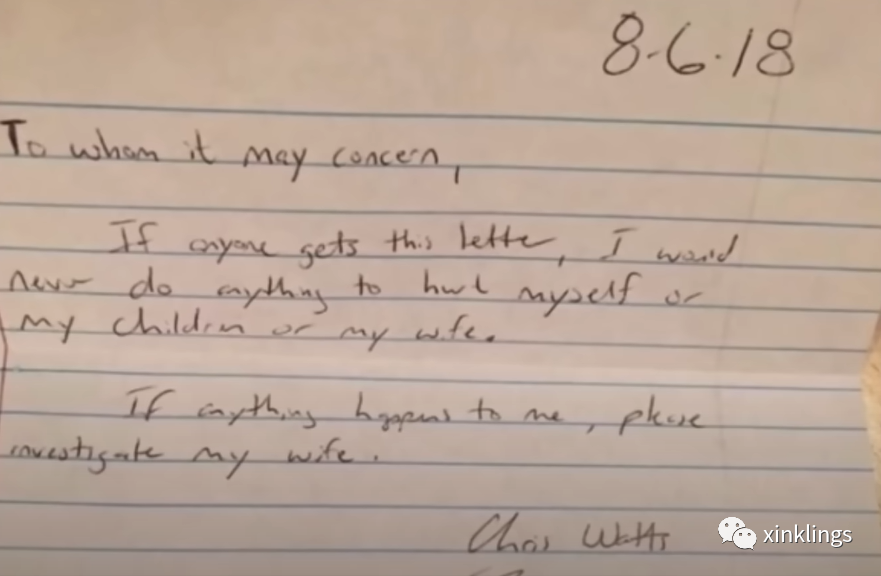 8-6-18
To whom it may concern,
If anyone gets this letter, I would
never do anything to hurt myself or
my children or my wife.
If anything happens to me, please
investigate my wife.
Chris Watts
xinklings